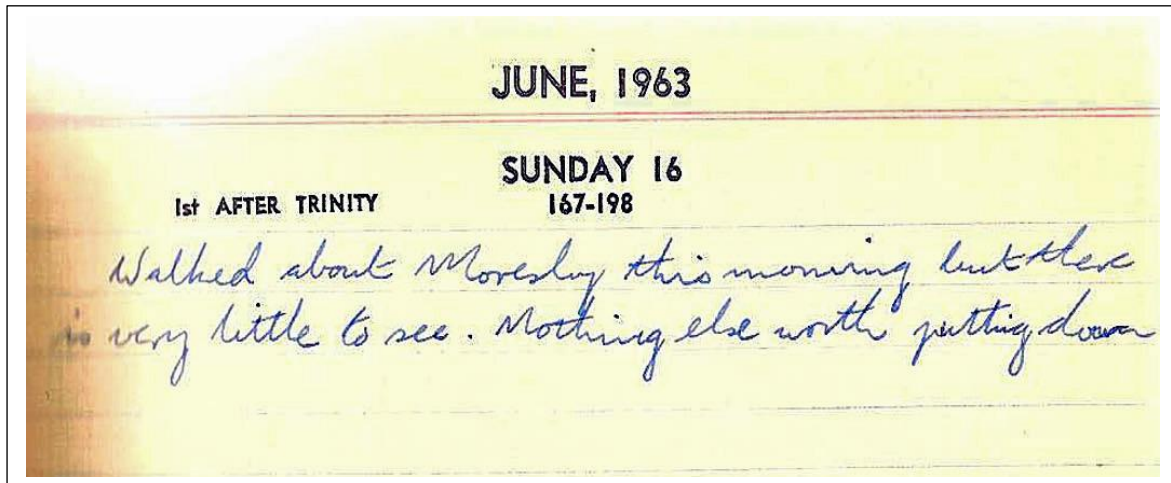 JUNE, 1963
SUNDAY 16
1st AFTER TRINITY 167-198
Walked about Moresby this morning but there
is very little to see. Nothing else worth putting down